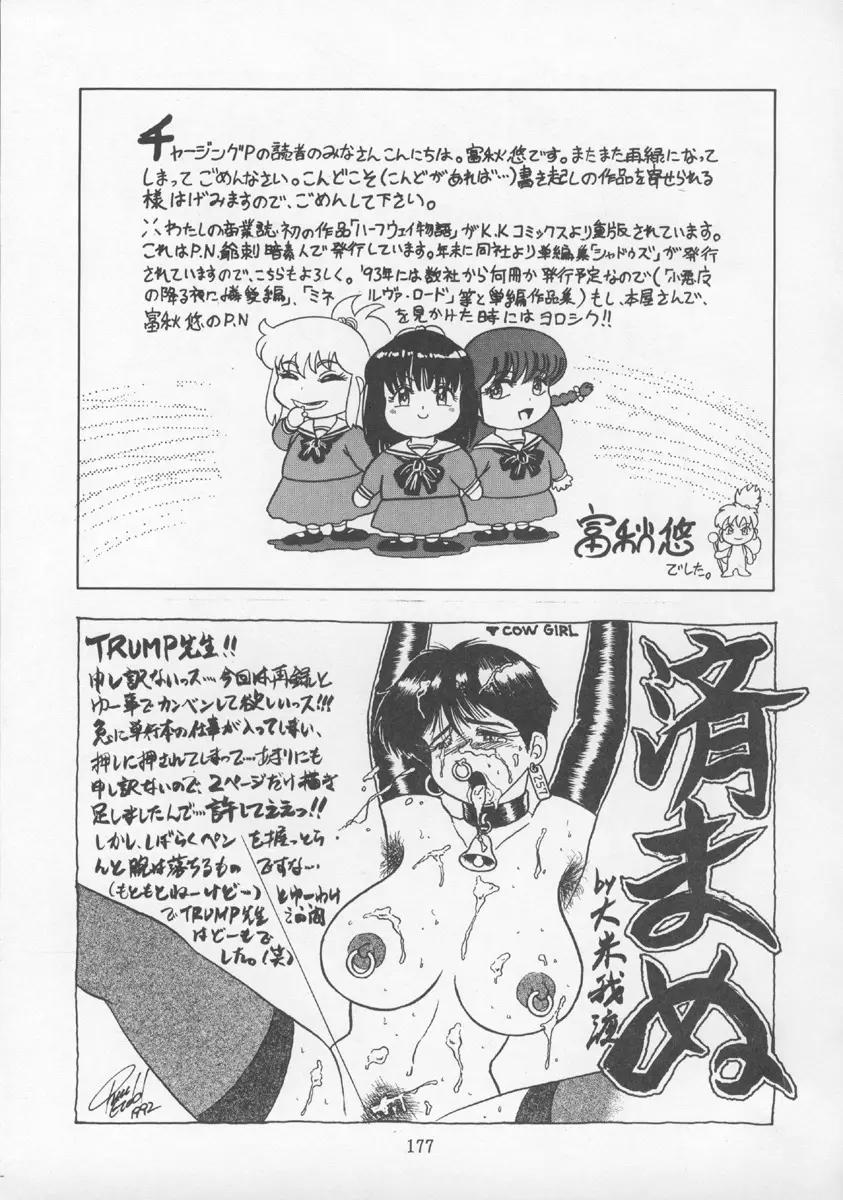 チャージングPの読者のみなさんこんにちは。富秋悠です。またまた再録になって
しまってごめんなさい。こんどこそ(こんどがあれば…)書き起しの作品を寄せられる
様はげみますので、ごめんして下さい。
※わたしの商業誌・初の作品「ハーフウェイ物語」がK.Kコミックスより重版されています。
これはP.N.爺刺暗素人で発行しています。年末に同社より単編集「シャドウズ」が発行
されていますので、こちらもよろしく。'93年には数社から何冊か発行予定なので(「小悪魔
の降る夜に」、「ミネルヴァ・ロード」等と単編作品集)もし、本屋さんで、
富秋悠のP.Nを見かけた時にはヨロシク!!
富秋悠
でした。
TRUMP先生!!
申し訳ないっス…今回は再録と
ゆー事でカンベンして欲しいっス!!!
急に単行本の仕事が入ってしまい、
押しに押されてしまって…あまりにも
申し訳ないので、2ページだけ描き
足しましたんで…許してえぇっ!!
しかし、しばらくペンを握っとら
んと腕は落ちるものですな…
(もともとねーけど…)とゆーわけ
でTRUMP先生
はどーもで
した。(笑)
▼COW GIRL
257
済まぬ
by大朱我渡
1992
177